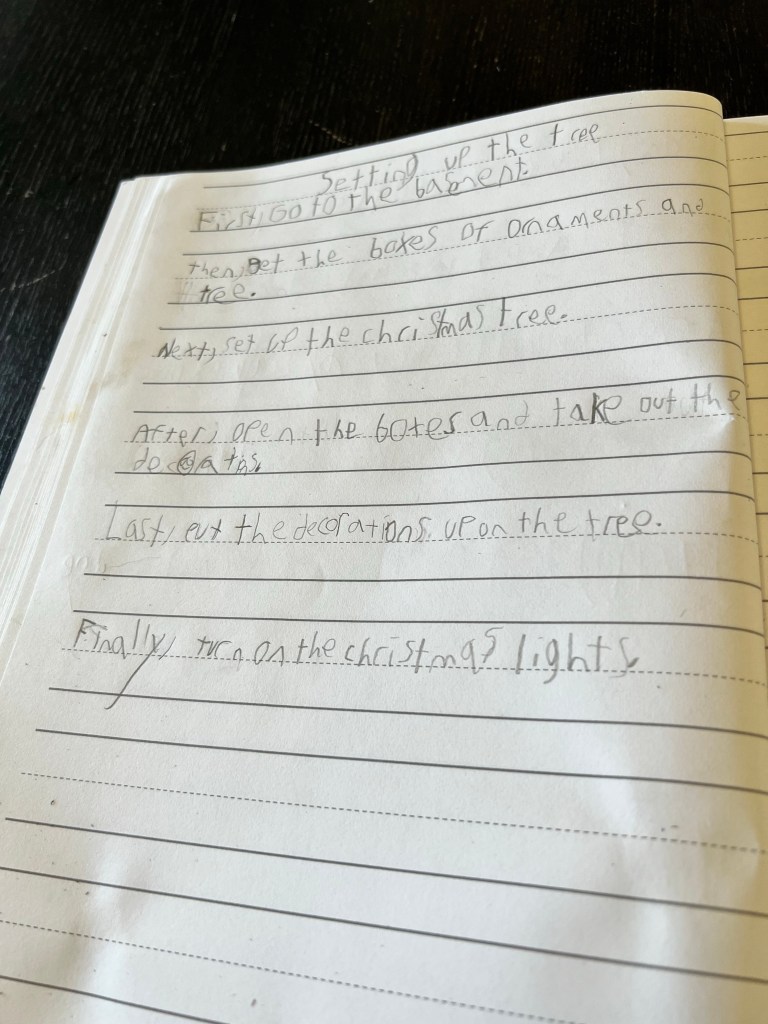 Setting up the tree
First, Go to the basment.
then, get the boxes of ornaments and
tree.
Next, set up the christmas tree.
After, open the boxes and take out the
Last, put the decorations up on the tree.
Finally, turn on the christmas lights.